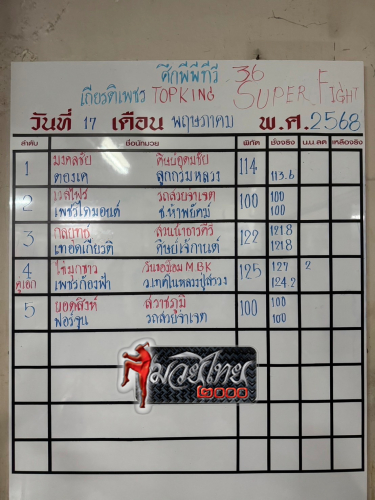 ศึกพีพีทีวี 36
เกียรติเพชร TOPKING SUPER FIGHT
วันที่ 17 เดือน พฤษภาคม พ.ศ. 2568
ลำดับ ชื่อนักมวย พิกัด ชั่งจริง น.น.ลด เหลือจริง
1 มงคลชัย ศิษย์อุดมชัย 114
ตองเค ลูกกรมหลวง 113.6
2 เวสไฟร์ รถสวยจ่าเจต 100 100
เพชรไดมอนด์ ช.ห้าพยัคฆ์ 100
3 สวนเจ้าอาวดีรี 122 121.8
เทอดเกียรติ ศิษย์เจ๊กานต์ 121.8
4 ไข่มุกขาว วันจอมโอม MBK 125 127 2
คู่เอก เพชรก้องฟ้า ว.เทคโนหลวงปู่สาวง 124.2
5 ยอดสิงห์ สวาชภูมิ 100 100
ฟอร์จูน รถสวยจ่าเจต 100
มวยไทย
๒๐๐๐